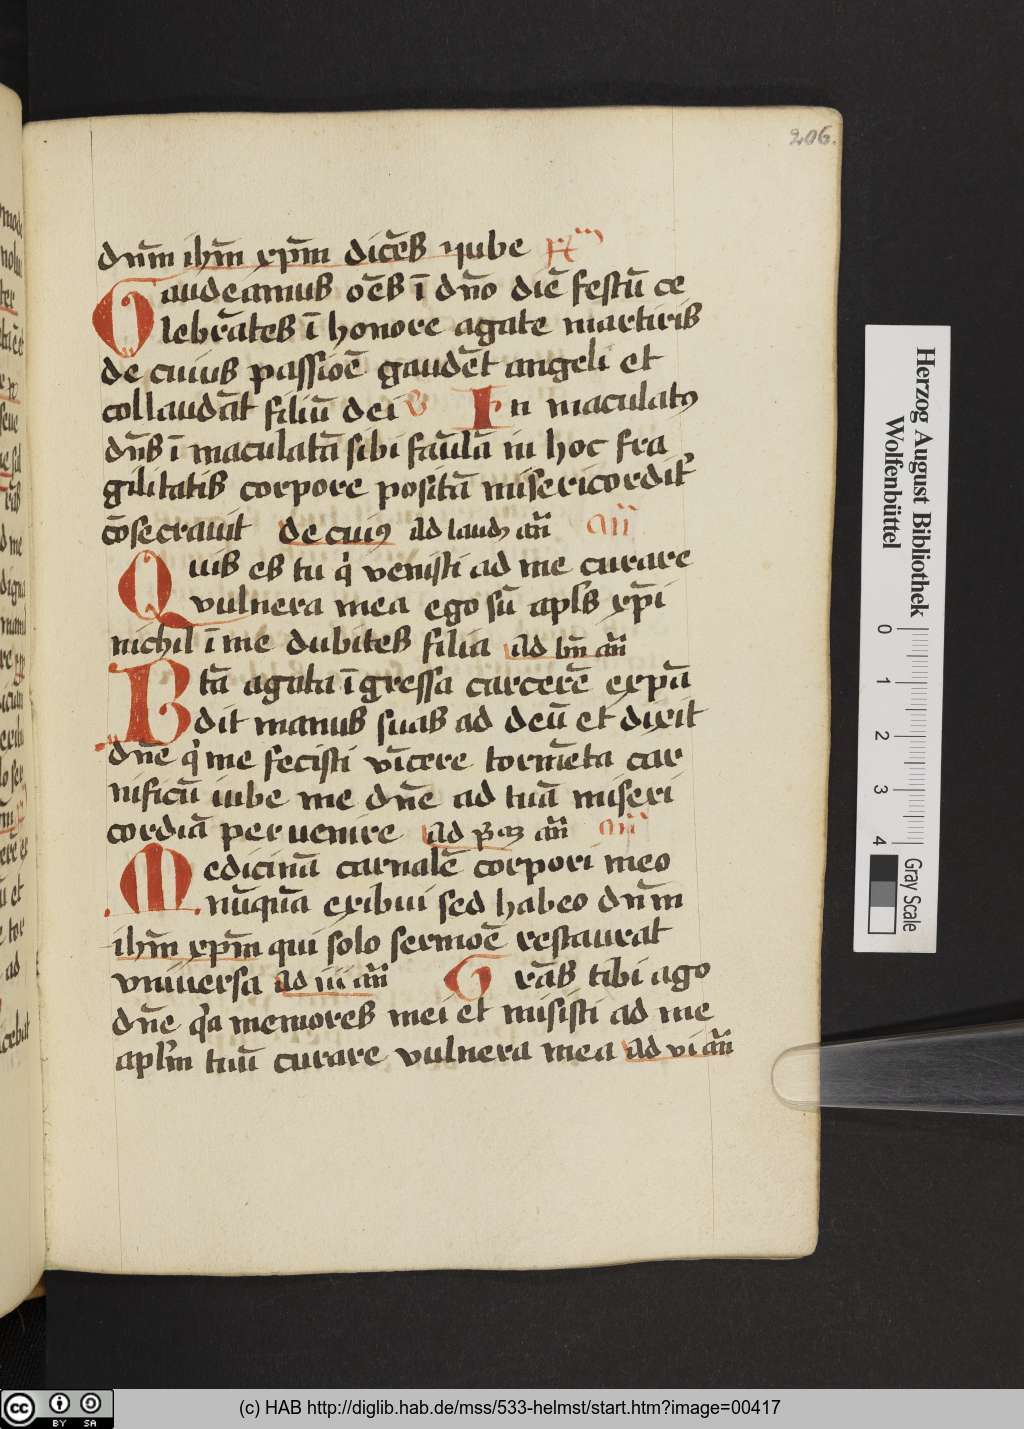 206.
dn̄m ih̄m xp̄m dicēs iube
Gaudeamus oēs ī dn̄o diē festū ce
lebrātes ī honore agate martiris
de cuius passioē gaudēt angeli et
collaudāt filiū dei v In maculatꝰ
dn̄s ī maculatā sibi faūlā in hoc fra
gilitatis corpore positā misericordit᷑
cōsecrauit de cuiꝰ ad laudꝫ an̄
Quis es tu q̇ venisti ad me curare
vulnera mea ego sū apl̄s xp̄i
nichil ī me dubites filia ad bn̄ an̄
Btā agata īgressa carcerē expā
dit manus suas ad deū et dixit
dn̄e q̇ me fecisti vīcere tormēta car
nificū iube me dn̄e ad tuā miseri
cordiā peruenire ad p̄ꝫ an̄
Medicinā carnalē corpori meo
nūquā exibui sed habeo dn̄m
ih̄m xp̄m qui solo sermoē restaurat
vniuersa ad iii an̄ Grās tibi ago
dn̄e qa memores mei et misisti ad me
apl̄m tuū curare vulnera mea ad vi an̄
Herzog August Bibliothek
Wolfenbüttel
0 1 2 3 4
Gray Scale
(c) HAB http://diglib.hab.de/mss/533-helmst/start.htm?image=00417
cc BY SA